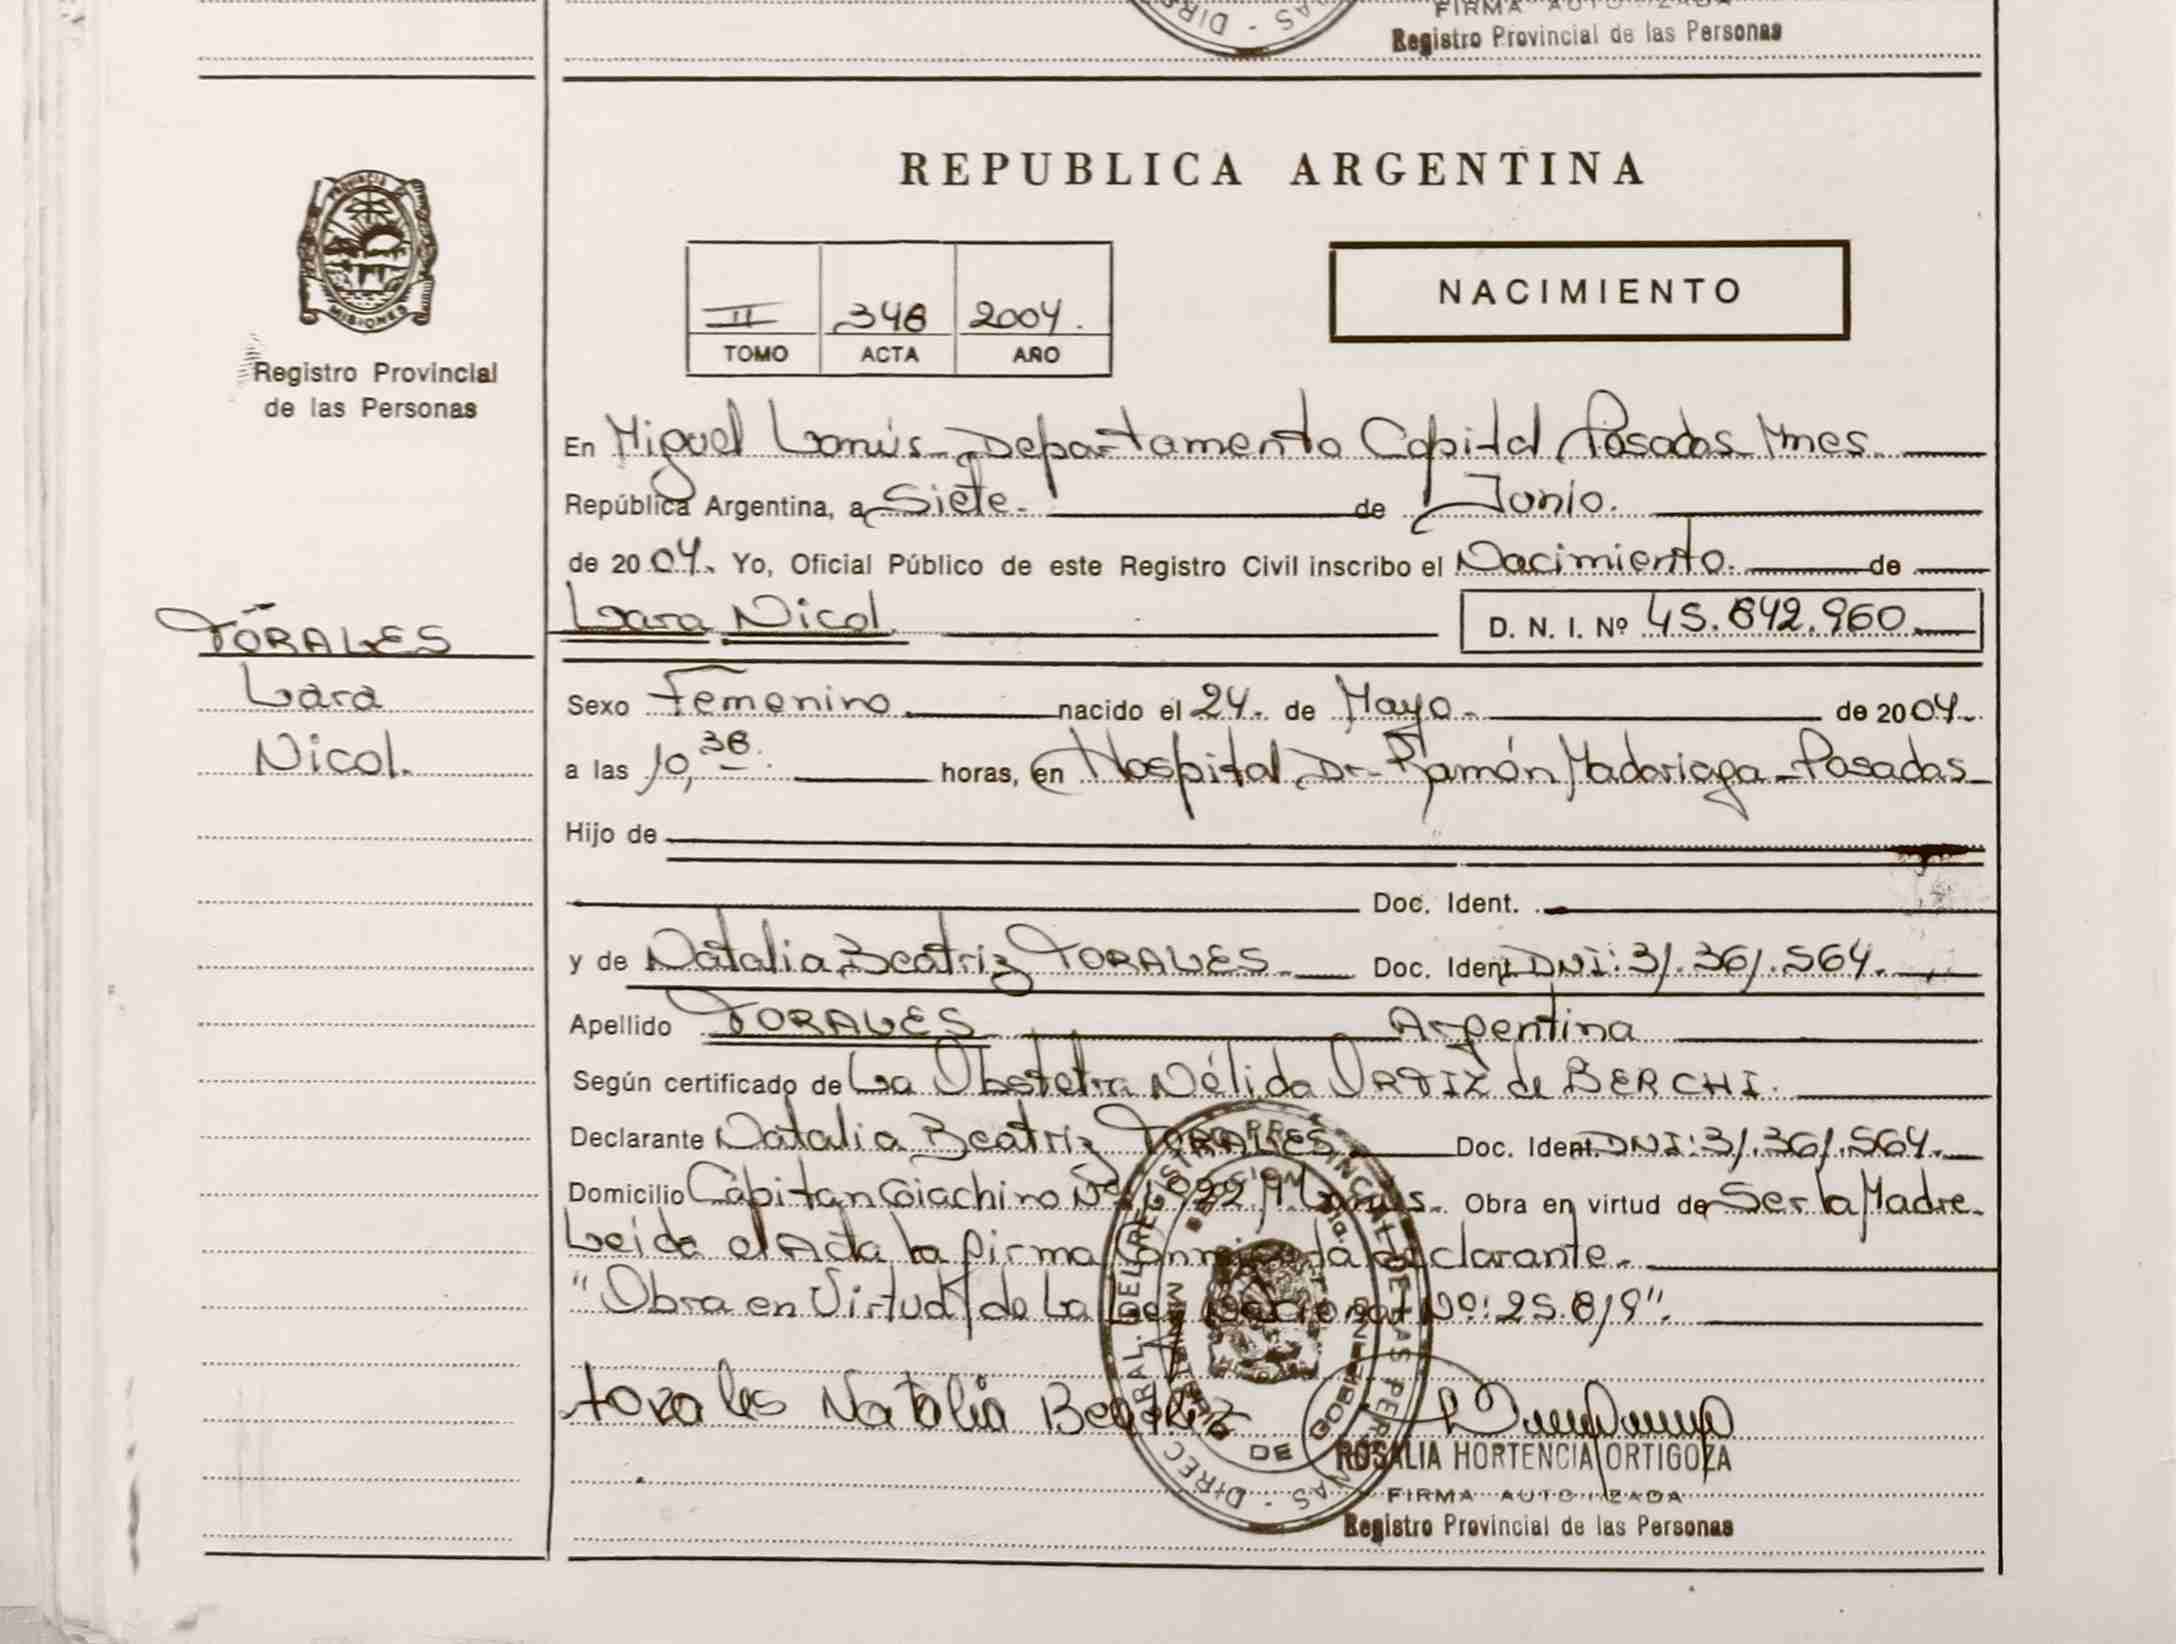 FIRMA AUTORIZADA
Registro Provincial de las Personas
REPUBLICA ARGENTINA
PROVINCIA DE
MISIONES
Registro Provincial
de las Personas
II 348 2004.
TOMO ACTA AÑO
NACIMIENTO
En Miguel Lanús - Departamento Capital Posadas Mnes.
República Argentina, a Siete. de Junio.
de 2004. Yo, Oficial Público de este Registro Civil inscribo el Nacimiento. de
Lara Nicol. D. N. I. Nº 45.842.960.
TORALES
Lara
Nicol.
Sexo Femenino nacido el 24. de Mayo. de 2004.
a las 10,38. horas, en Hospital Dr. Ramón Madariaga - Posadas
Hijo de
Doc. Ident.
y de Natalia Beatriz TORALES. Doc. Ident. DNI: 31.361.564.
Apellido TORALES Argentina
Según certificado de La Obstetra Nélida ORTIZ de BERCHI.
Declarante Natalia Beatriz TORALES Doc. Ident. DNI: 31.361.564.
Domicilio Capitan Giachino Nº M. Lanús. Obra en virtud de Ser la Madre.
Leida el Acta la firma Conmigo la declarante.
"Obra en Virtud de La Ley Nacional Nº: 25.819".
torales Natalia Beatriz
DIREC GRAL. DEL REGISTRO PROVINCIAL DE LAS PERSONAS
MINISTERIO DE GOBIERNO
ROSALIA HORTENCIA ORTIGOZA
FIRMA AUTORIZADA
Registro Provincial de las Personas